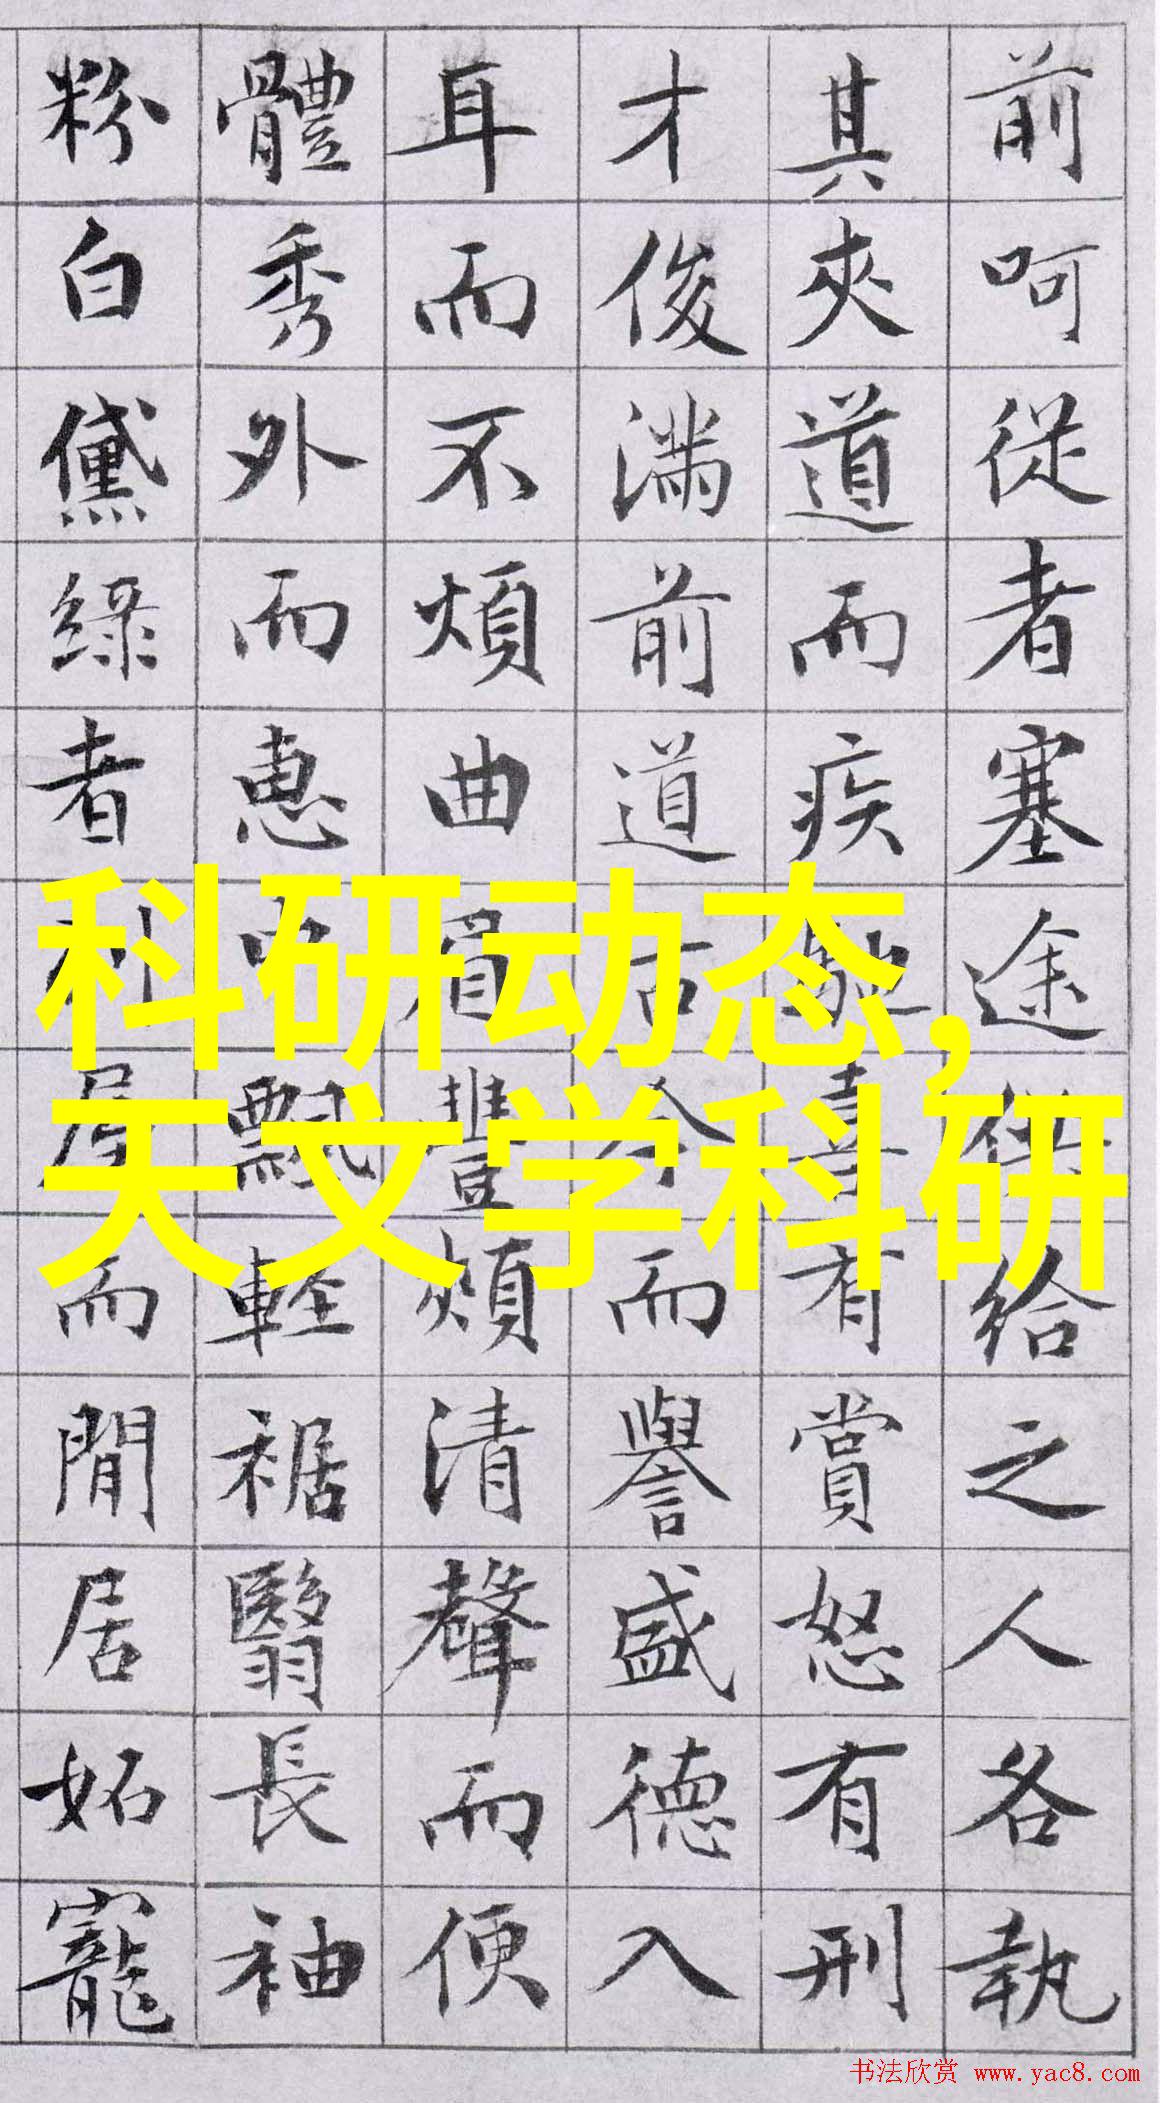 前呵從者塞途供給之人各執
其夾道而疾馳喜有賞怒有刑
才俊滿前道古今而譽盛德入
耳而不煩曲眉豐頰清聲而便
體秀外而惠中飄輕裾翳長袖
粉白黛綠者列屋而閒居妬寵
科研动态,
天文学科研
书法欣赏 www.yac8.com